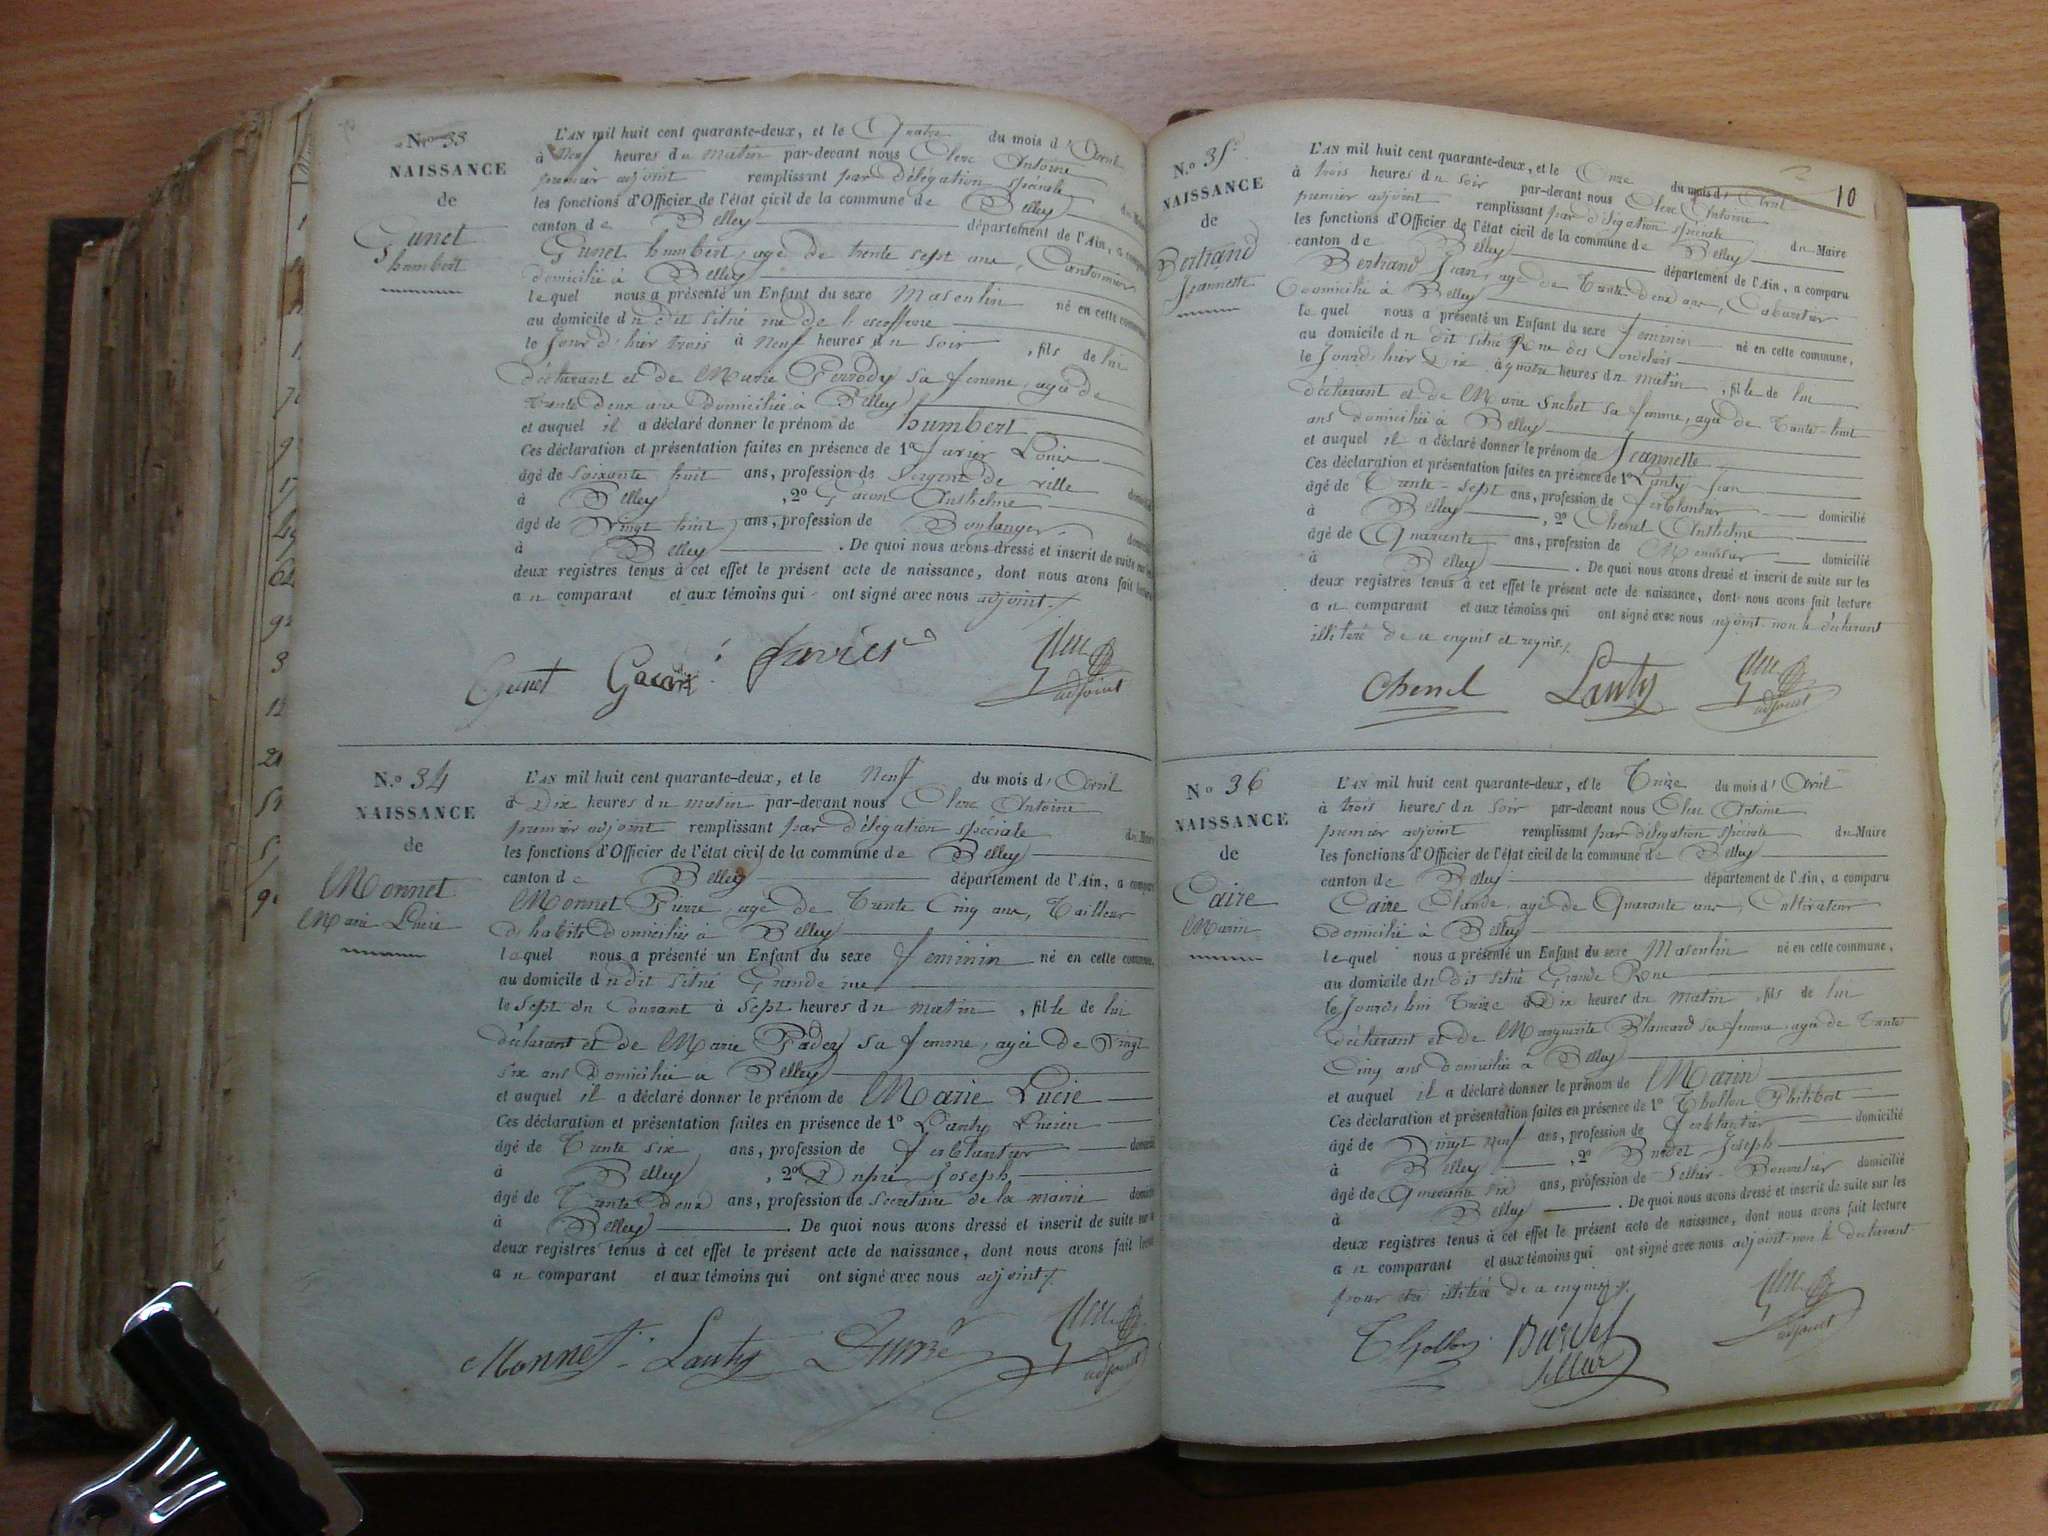 N.o 33
NAISSANCE
de
Gunet
humbert
L'AN mil huit cent quarante-deux, et le Quatre du mois d'Avril
à Neuf heures du matin par-devant nous Clerc Antoine
premier adjoint remplissant par délégation spéciale
les fonctions d'Officier de l'état civil de la commune de Belley
canton de Belley département de l'Ain, a comparu
Gunet humbert, agé de trente sept ans, Cantonnier
domicilié à Belley
lequel nous a présenté un Enfant du sexe Masculin né en cette commune
au domicile du dit situé rue de
le Jour d'hier trois à Neuf heures du soir, fils de lui
déclarant et de Marie Perrody sa femme, agée de
trente deux ans domiciliée à Belley
et auquel il a déclaré donner le prénom de humbert
Ces déclaration et présentation faites en présence de 1o Javier Louis
âgé de soixante huit ans, profession de sergent de ville
à Belley, 2o Gacon Anthelme
âgé de Vingt huit ans, profession de Boulanger
à Belley. De quoi nous avons dressé et inscrit de suite sur les
deux registres tenus à cet effet le présent acte de naissance, dont nous avons fait lecture
au comparant et aux témoins qui ont signé avec nous adjoint./.
Gunet Gacon Javier Clerc adjoint
N.o 34
NAISSANCE
de
Monnet
Marie Lucie
L'AN mil huit cent quarante-deux, et le Neuf du mois d'Avril
à Dix heures du matin par-devant nous Clerc Antoine
premier adjoint remplissant par délégation spéciale du Maire
les fonctions d'Officier de l'état civil de la commune de Belley
canton de Belley département de l'Ain, a comparu
Monnet Pierre, agé de Trente Cinq ans, Tailleur
d'habits domicilié à Belley
lequel nous a présenté un Enfant du sexe feminin né en cette commune,
au domicile du dit situé Grande rue
le Sept du Courant à Sept heures du matin, fille de lui
déclarant et de Marie Fadey sa femme, agée de Vingt
six ans domiciliée a Belley
et auquel il a déclaré donner le prénom de Marie Lucie
Ces déclaration et présentation faites en présence de 1o Lanty Lucien
âgé de Trente six ans, profession de ferblantier
à Belley, 2o Dupré Joseph
âgé de Trente Deux ans, profession de secretaire de la mairie
à Belley. De quoi nous avons dressé et inscrit de suite sur les
deux registres tenus à cet effet le présent acte de naissance, dont nous avons fait lecture
au comparant et aux témoins qui ont signé avec nous adjoint./.
Monnet Lanty Dupré Clerc adjoint
10
N.o 35
NAISSANCE
de
Bertrand
Jeannette
L'AN mil huit cent quarante-deux, et le Onze du mois d'Avril
à trois heures du soir par-devant nous Clerc Antoine
premier adjoint remplissant par délégation spéciale du Maire
les fonctions d'Officier de l'état civil de la commune de Belley
canton de Belley département de l'Ain, a comparu
Bertrand Jean, agé de Trente-deux ans, Cabaretier
Domicilié à Belley
lequel nous a présenté un Enfant du sexe feminin né en cette commune,
au domicile du dit situé Rue des Cordeliers
le Jour d'hier Dix, à quatre heures du matin, fille de lui
déclarant et de Marie Suchet sa femme, agée de Trente-huit
ans domiciliée à Belley
et auquel il a déclaré donner le prénom de Jeannette
Ces déclaration et présentation faites en présence de 1o Lanty Jean
âgé de Trente-sept ans, profession de ferblantier domicilié
à Belley, 2o Chenel Anthelme
âgé de Quarante ans, profession de Menuisier domicilié
à Belley. De quoi nous avons dressé et inscrit de suite sur les
deux registres tenus à cet effet le présent acte de naissance, dont nous avons fait lecture
au comparant et aux témoins qui ont signé avec nous adjoint non le déclarant
illitéré de ce enquis et requis./.
Chenel Lanty Clerc adjoint
No 36
NAISSANCE
de
Caire
Marin
L'AN mil huit cent quarante-deux, et le Treize du mois d'Avril
à trois heures du soir par-devant nous Clerc Antoine
premier adjoint remplissant par délégation spéciale du Maire
les fonctions d'Officier de l'état civil de la commune de Belley
canton de Belley département de l'Ain, a comparu
Caire Claude, agé de Quarante ans, Cultivateur
domicilié à Belley
lequel nous a présenté un Enfant du sexe Masculin né en cette commune,
au domicile du dit situé Grande Rue
le Jourd'hui Treize à Dix heures du matin, fils de lui
déclarant et de Marguerite Blancard sa femme, agée de Trente
Cinq ans domiciliée à Belley
et auquel il a déclaré donner le prénom de Marin
Ces déclaration et présentation faites en présence de 1o Thollon Philibert
âgé de Vingt neuf ans, profession de ferblantier domicilié
à Belley, 2o Burdet Joseph
âgé de Quarante six ans, profession de Sellier- domicilié
à Belley. De quoi nous avons dressé et inscrit de suite sur les
deux registres tenus à cet effet le présent acte de naissance, dont nous avons fait lecture
au comparant et aux témoins qui ont signé avec nous adjoint non le déclarant
pour être illitéré de ce enquis./.
Thollon Burdet Clerc adjoint